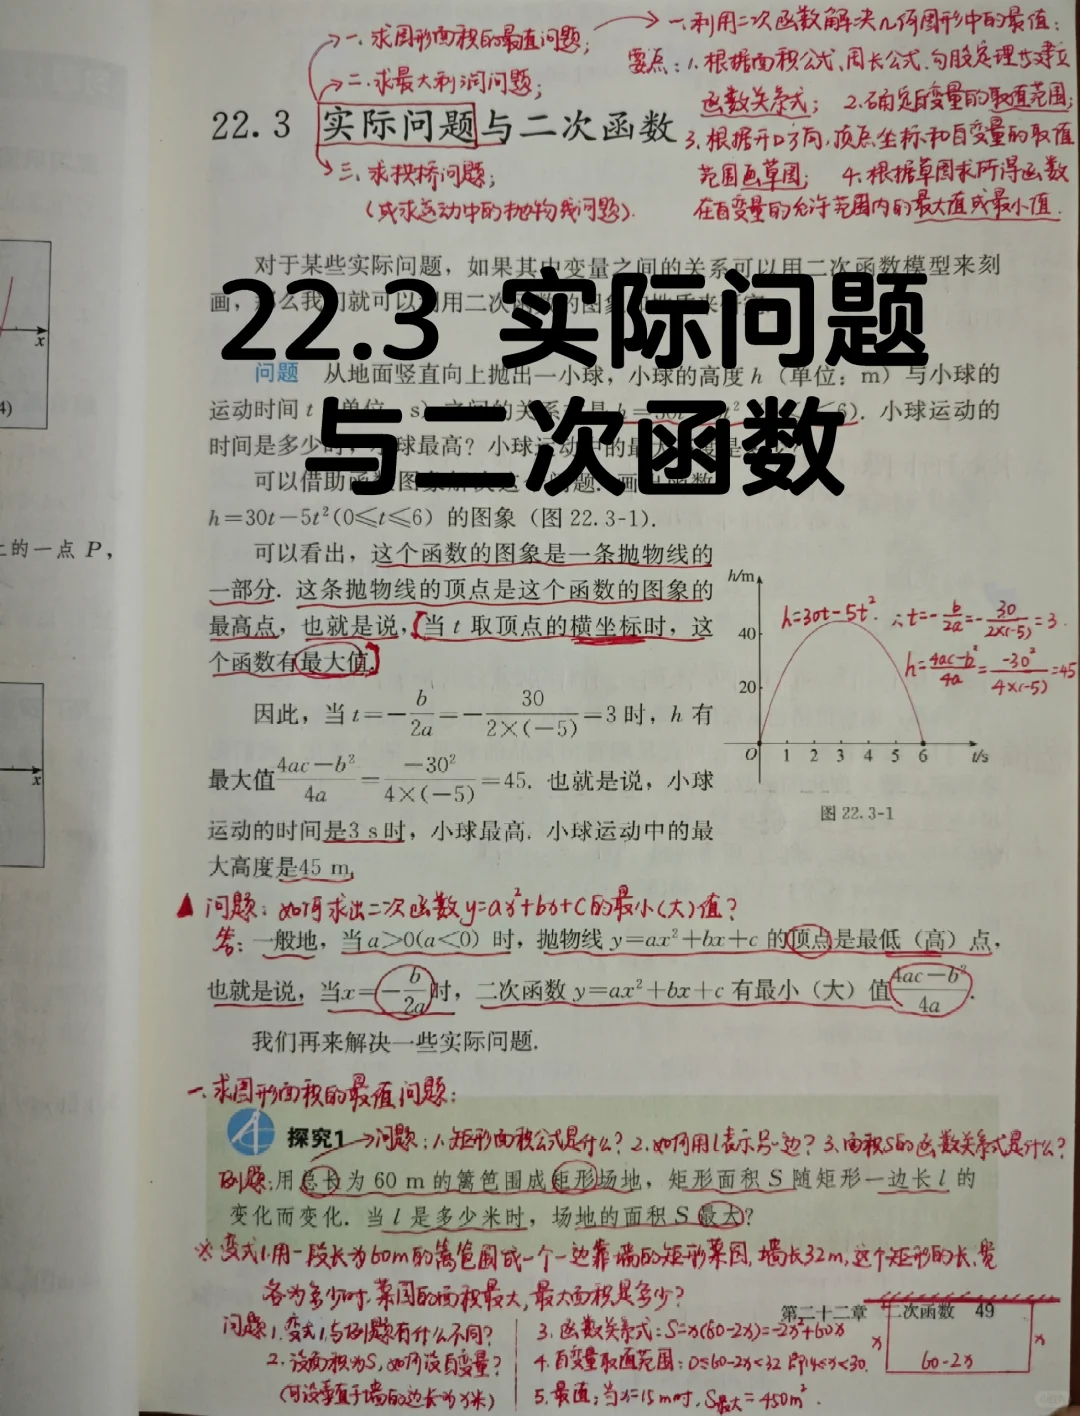 一、求图形面积的最值问题;
二、求最大利润问题;
22.3 实际问题与二次函数
三、求拱桥问题;
(或求运动中的抛物线问题).
一、利用二次函数解决几何图形中的最值:
要点:1.根据面积公式、周长公式、勾股定理等建立
函数关系式; 2.确定自变量的取值范围;
3.根据开口方向,顶点坐标和自变量的取值
范围画草图; 4.根据草图求所得函数
在自变量的允许范围内的最大值或最小值.
对于某些实际问题,如果其中变量之间的关系可以用二次函数模型来刻
画,那么我们就可以利用二次函数的图象
22.3 实际问题
与二次函数
问题 从地面竖直向上抛出一小球,小球的高度 h(单位:m)与小球的
运动时间 t 6).小球运动的
时间是多少时,小球最高?小球运动中的最
可以借助函数图象解决这个问题.画出函数
h=30t-5t²(0≤t≤6)的图象(图 22.3-1).
可以看出,这个函数的图象是一条抛物线的
一部分.这条抛物线的顶点是这个函数的图象的
最高点,也就是说,当 t 取顶点的横坐标时,这
个函数有最大值.
因此,当 t=-b/2a=-30/2×(-5)=3 时,h 有
最大值 4ac-b²/4a=-30²/4×(-5)=45.也就是说,小球
运动的时间是3 s时,小球最高.小球运动中的最
大高度是45 m.
h/m
40
20
O 1 2 3 4 5 6 t/s
h=30t-5t². ∴t=-b/2a=-30/2×(-5)=3.
h=4ac-b²/4a=-30²/4×(-5)=45
图 22.3-1
▲问题:如何求出二次函数y=ax²+bx+c的最小(大)值?
答:一般地,当 a>0(a<0)时,抛物线 y=ax²+bx+c 的顶点是最低(高)点,
也就是说,当x=-b/2a时,二次函数 y=ax²+bx+c 有最小(大)值4ac-b²/4a.
我们再来解决一些实际问题.
一、求图形面积的最值问题:
探究1→问题:1.矩形面积公式是什么?2.如何用l表示另一边?3.面积S的函数关系式是什么?
例题:用总长为 60 m 的篱笆围成矩形场地,矩形面积 S 随矩形一边长 l 的
变化而变化.当 l 是多少米时,场地的面积 S 最大?
※变式1.用一段长为60m的篱笆围成一个一边靠墙的矩形菜园,墙长32m,这个矩形的长、宽
各为多少时,菜园的面积最大,最大面积是多少?
问题1.变式1与例题有什么不同?
2.设面积为S,如何设自变量?
(可设垂直于墙的边长为x米)
3.函数关系式:S=x(60-2x)=-2x²+60x
4.自变量取值范围:0≤60-2x<32 即14<x<30.
5.最值:当x=15m时,S最大=450m².
第二十二章 二次函数 49
x
x
60-2x
4)
x
上的一点 P,
x